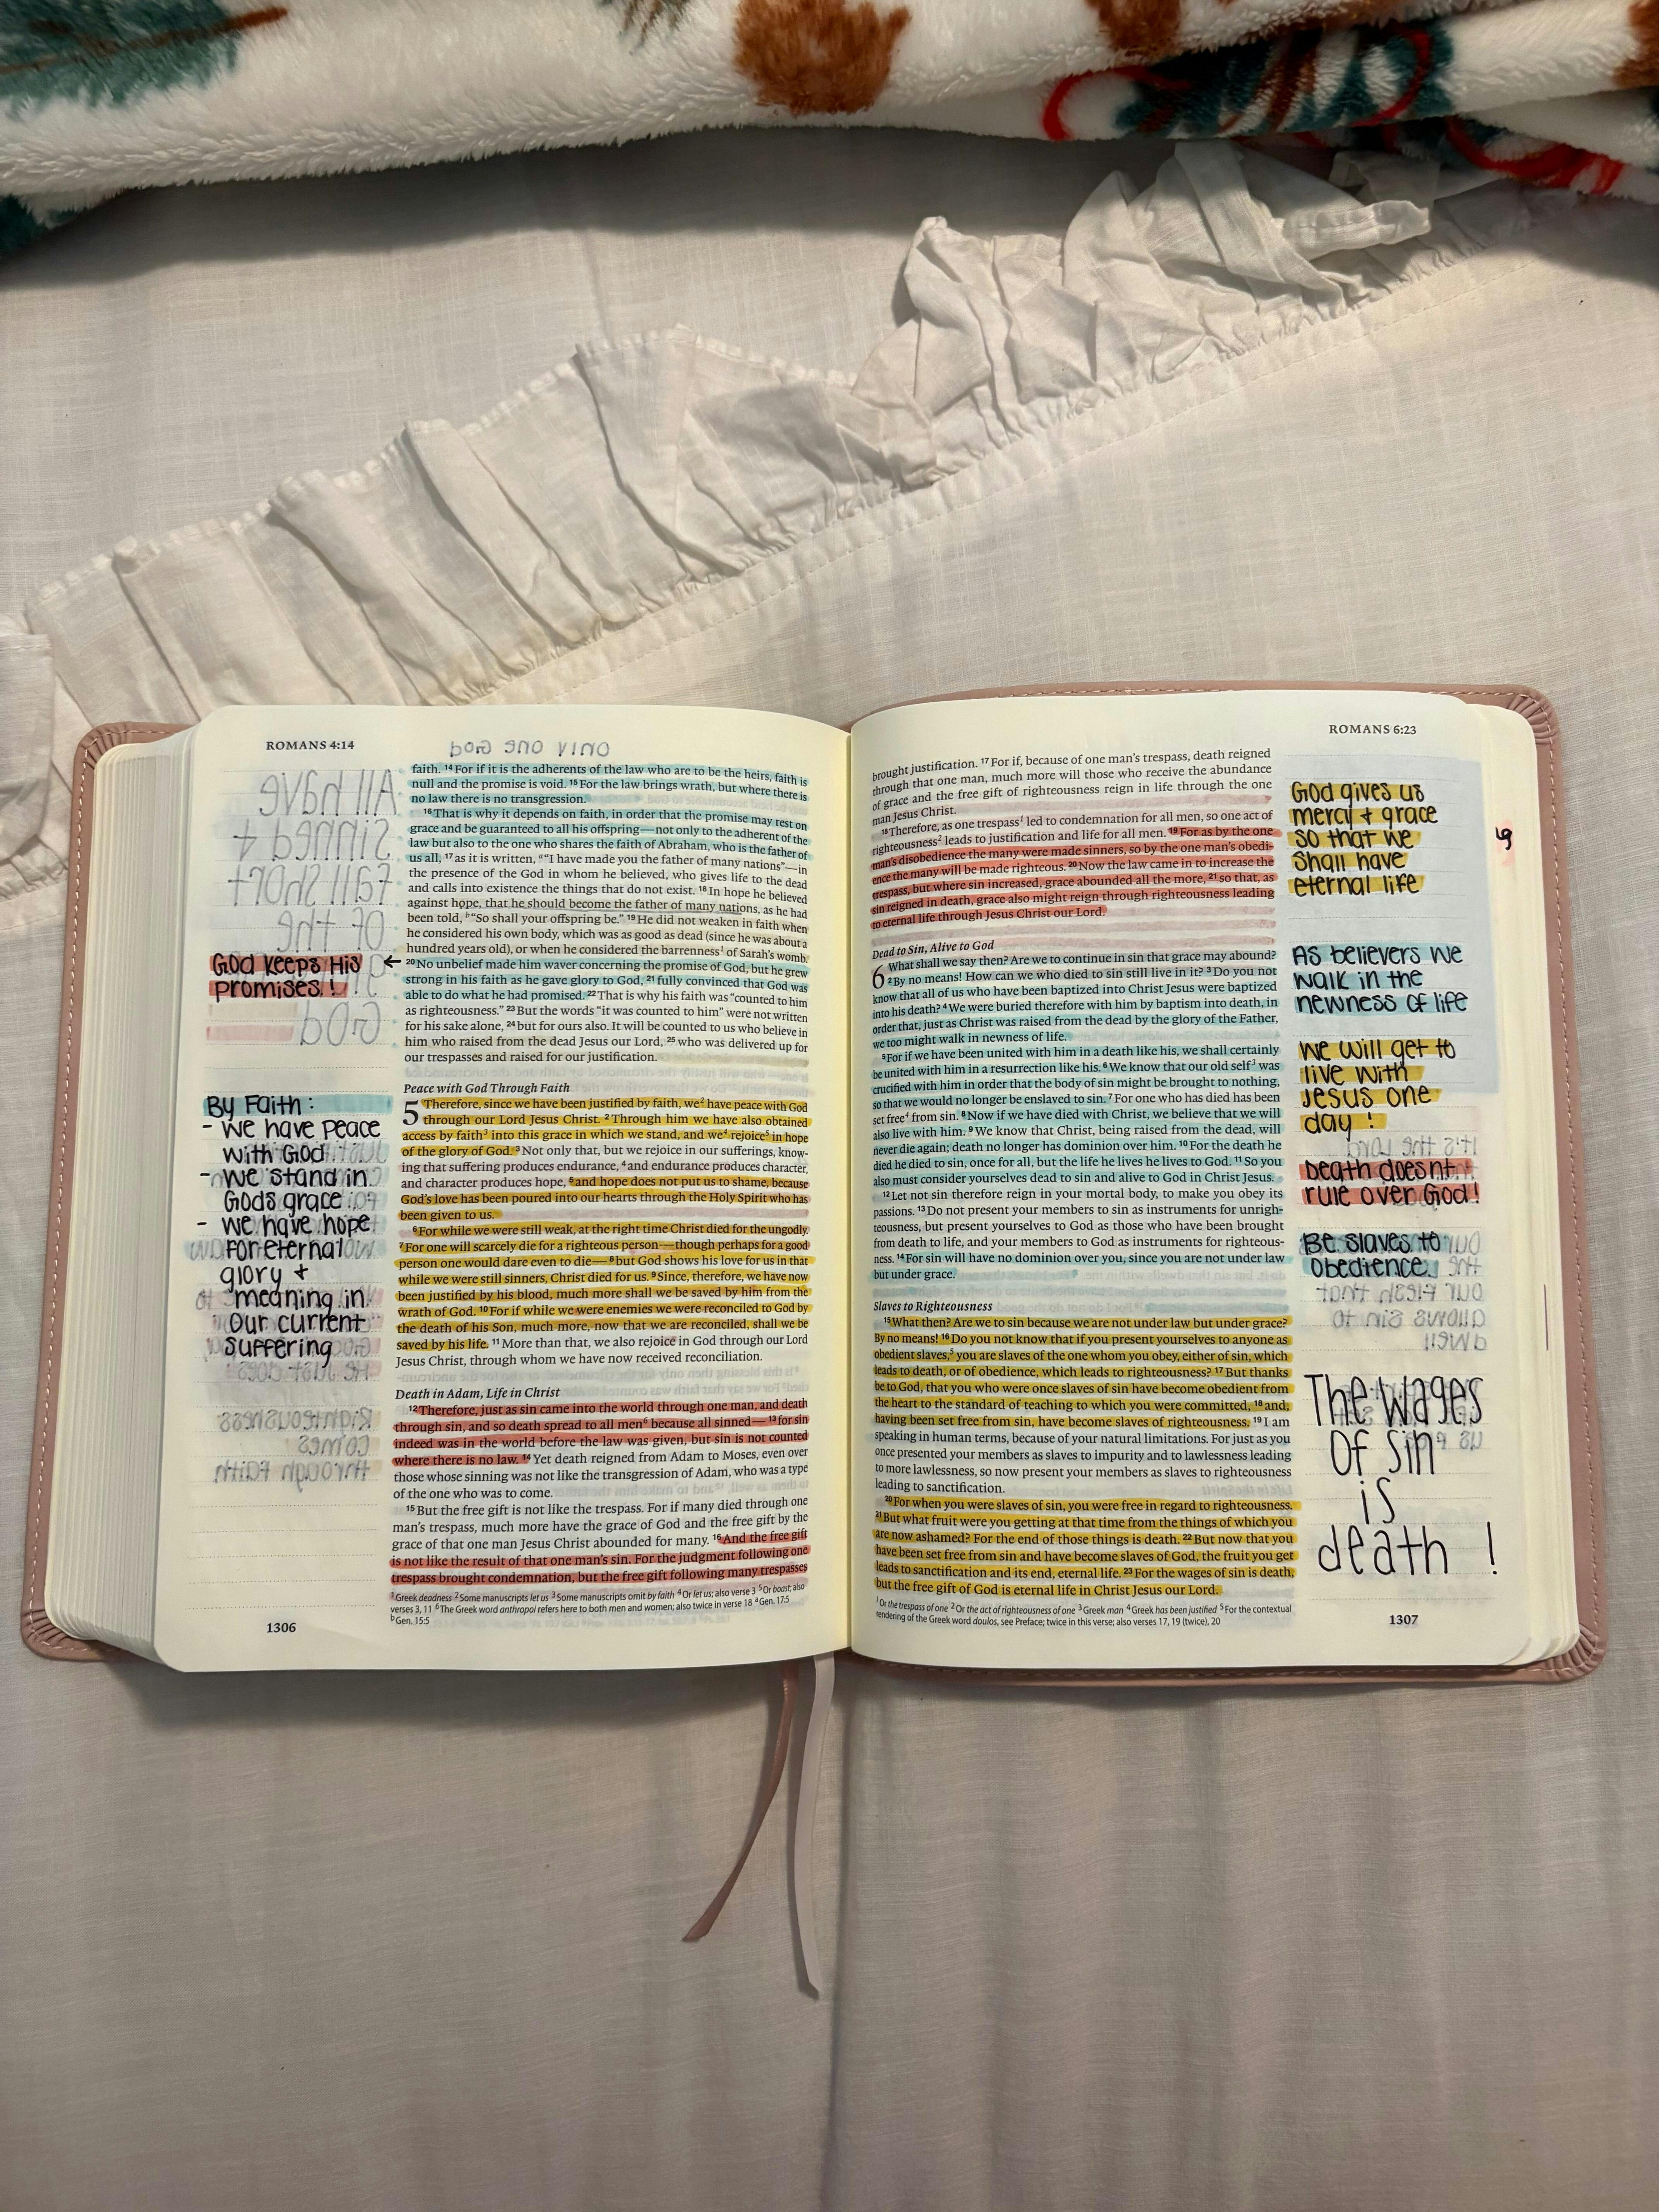 ROMANS 4:14
God keeps His
promises!
By Faith:
- we have peace
with God
- we stand in
Gods grace
- we have hope
For eternal
glory +
meaning in
our current
suffering
faith. 14 For if it is the adherents of the law who are to be the heirs, faith is
null and the promise is void. 15 For the law brings wrath, but where there is
no law there is no transgression.
16 That is why it depends on faith, in order that the promise may rest on
grace and be guaranteed to all his offspring—not only to the adherent of the
law but also to the one who shares the faith of Abraham, who is the father of
us all, 17 as it is written, a“I have made you the father of many nations”—in
the presence of the God in whom he believed, who gives life to the dead
and calls into existence the things that do not exist. 18 In hope he believed
against hope, that he should become the father of many nations, as he had
been told, b“So shall your offspring be.” 19 He did not weaken in faith when
he considered his own body, which was as good as dead (since he was about a
hundred years old), or when he considered the barrenness1 of Sarah’s womb.
20 No unbelief made him waver concerning the promise of God, but he grew
strong in his faith as he gave glory to God, 21 fully convinced that God was
able to do what he had promised. 22 That is why his faith was “counted to him
as righteousness.” 23 But the words “it was counted to him” were not written
for his sake alone, 24 but for ours also. It will be counted to us who believe in
him who raised from the dead Jesus our Lord, 25 who was delivered up for
our trespasses and raised for our justification.
Peace with God Through Faith
5 Therefore, since we have been justified by faith, we2 have peace with God
through our Lord Jesus Christ. 2 Through him we have also obtained
access by faith3 into this grace in which we stand, and we4 rejoice5 in hope
of the glory of God. 3 Not only that, but we rejoice in our sufferings, know-
ing that suffering produces endurance, 4 and endurance produces character,
and character produces hope, 5 and hope does not put us to shame, because
God’s love has been poured into our hearts through the Holy Spirit who has
been given to us.
6 For while we were still weak, at the right time Christ died for the ungodly.
7 For one will scarcely die for a righteous person—though perhaps for a good
person one would dare even to die— 8 but God shows his love for us in that
while we were still sinners, Christ died for us. 9 Since, therefore, we have now
been justified by his blood, much more shall we be saved by him from the
wrath of God. 10 For if while we were enemies we were reconciled to God by
the death of his Son, much more, now that we are reconciled, shall we be
saved by his life. 11 More than that, we also rejoice in God through our Lord
Jesus Christ, through whom we have now received reconciliation.
Death in Adam, Life in Christ
12 Therefore, just as sin came into the world through one man, and death
through sin, and so death spread to all men6 because all sinned— 13 for sin
indeed was in the world before the law was given, but sin is not counted
where there is no law. 14 Yet death reigned from Adam to Moses, even over
those whose sinning was not like the transgression of Adam, who was a type
of the one who was to come.
15 But the free gift is not like the trespass. For if many died through one
man’s trespass, much more have the grace of God and the free gift by the
grace of that one man Jesus Christ abounded for many. 16 And the free gift
is not like the result of that one man’s sin. For the judgment following one
trespass brought condemnation, but the free gift following many trespasses
1 Greek deadness 2 Some manuscripts let us 3 Some manuscripts omit by faith 4 Or let us; also verse 3 5 Or boast; also
verses 3, 11 6 The Greek word anthropoi refers here to both men and women; also twice in verse 18 a Gen. 17:5
b Gen. 15:5
1306
ROMANS 6:23
brought justification. 17 For if, because of one man’s trespass, death reigned
through that one man, much more will those who receive the abundance
of grace and the free gift of righteousness reign in life through the one
man Jesus Christ.
18 Therefore, as one trespass1 led to condemnation for all men, so one act of
righteousness2 leads to justification and life for all men. 19 For as by the one
man’s disobedience the many were made sinners, so by the one man’s obedi-
ence the many will be made righteous. 20 Now the law came in to increase the
trespass, but where sin increased, grace abounded all the more, 21 so that, as
sin reigned in death, grace also might reign through righteousness leading
to eternal life through Jesus Christ our Lord.
Dead to Sin, Alive to God
6 What shall we say then? Are we to continue in sin that grace may abound?
2 By no means! How can we who died to sin still live in it? 3 Do you not
know that all of us who have been baptized into Christ Jesus were baptized
into his death? 4 We were buried therefore with him by baptism into death, in
order that, just as Christ was raised from the dead by the glory of the Father,
we too might walk in newness of life.
5 For if we have been united with him in a death like his, we shall certainly
be united with him in a resurrection like his. 6 We know that our old self3 was
crucified with him in order that the body of sin might be brought to nothing,
so that we would no longer be enslaved to sin. 7 For one who has died has been
set free4 from sin. 8 Now if we have died with Christ, we believe that we will
also live with him. 9 We know that Christ, being raised from the dead, will
never die again; death no longer has dominion over him. 10 For the death he
died he died to sin, once for all, but the life he lives he lives to God. 11 So you
also must consider yourselves dead to sin and alive to God in Christ Jesus.
12 Let not sin therefore reign in your mortal body, to make you obey its
passions. 13 Do not present your members to sin as instruments for unrigh-
teousness, but present yourselves to God as those who have been brought
from death to life, and your members to God as instruments for righteous-
ness. 14 For sin will have no dominion over you, since you are not under law
but under grace.
Slaves to Righteousness
15 What then? Are we to sin because we are not under law but under grace?
By no means! 16 Do you not know that if you present yourselves to anyone as
obedient slaves,5 you are slaves of the one whom you obey, either of sin, which
leads to death, or of obedience, which leads to righteousness? 17 But thanks
be to God, that you who were once slaves of sin have become obedient from
the heart to the standard of teaching to which you were committed, 18 and,
having been set free from sin, have become slaves of righteousness. 19 I am
speaking in human terms, because of your natural limitations. For just as you
once presented your members as slaves to impurity and to lawlessness leading
to more lawlessness, so now present your members as slaves to righteousness
leading to sanctification.
20 For when you were slaves of sin, you were free in regard to righteousness.
21 But what fruit were you getting at that time from the things of which you
are now ashamed? For the end of those things is death. 22 But now that you
have been set free from sin and have become slaves of God, the fruit you get
leads to sanctification and its end, eternal life. 23 For the wages of sin is death,
but the free gift of God is eternal life in Christ Jesus our Lord.
1 Or the trespass of one 2 Or the act of righteousness of one 3 Greek man 4 Greek has been justified 5 For the contextual
rendering of the Greek word doulos, see Preface; twice in this verse; also verses 17, 19 (twice), 20
God gives us
mercy + grace
so that we
shall have
eternal life
As believers we
walk in the
newness of life
We will get to
live with
Jesus one
day!
Death doesnt
rule over God!
Be slaves to
obedience
The wages
of sin
is
death!
1307